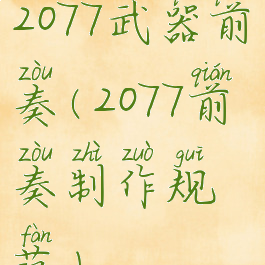 2077武器前
zòu qián
奏(2077前
zòu zhì zuò guī
奏制作规
fàn
范)